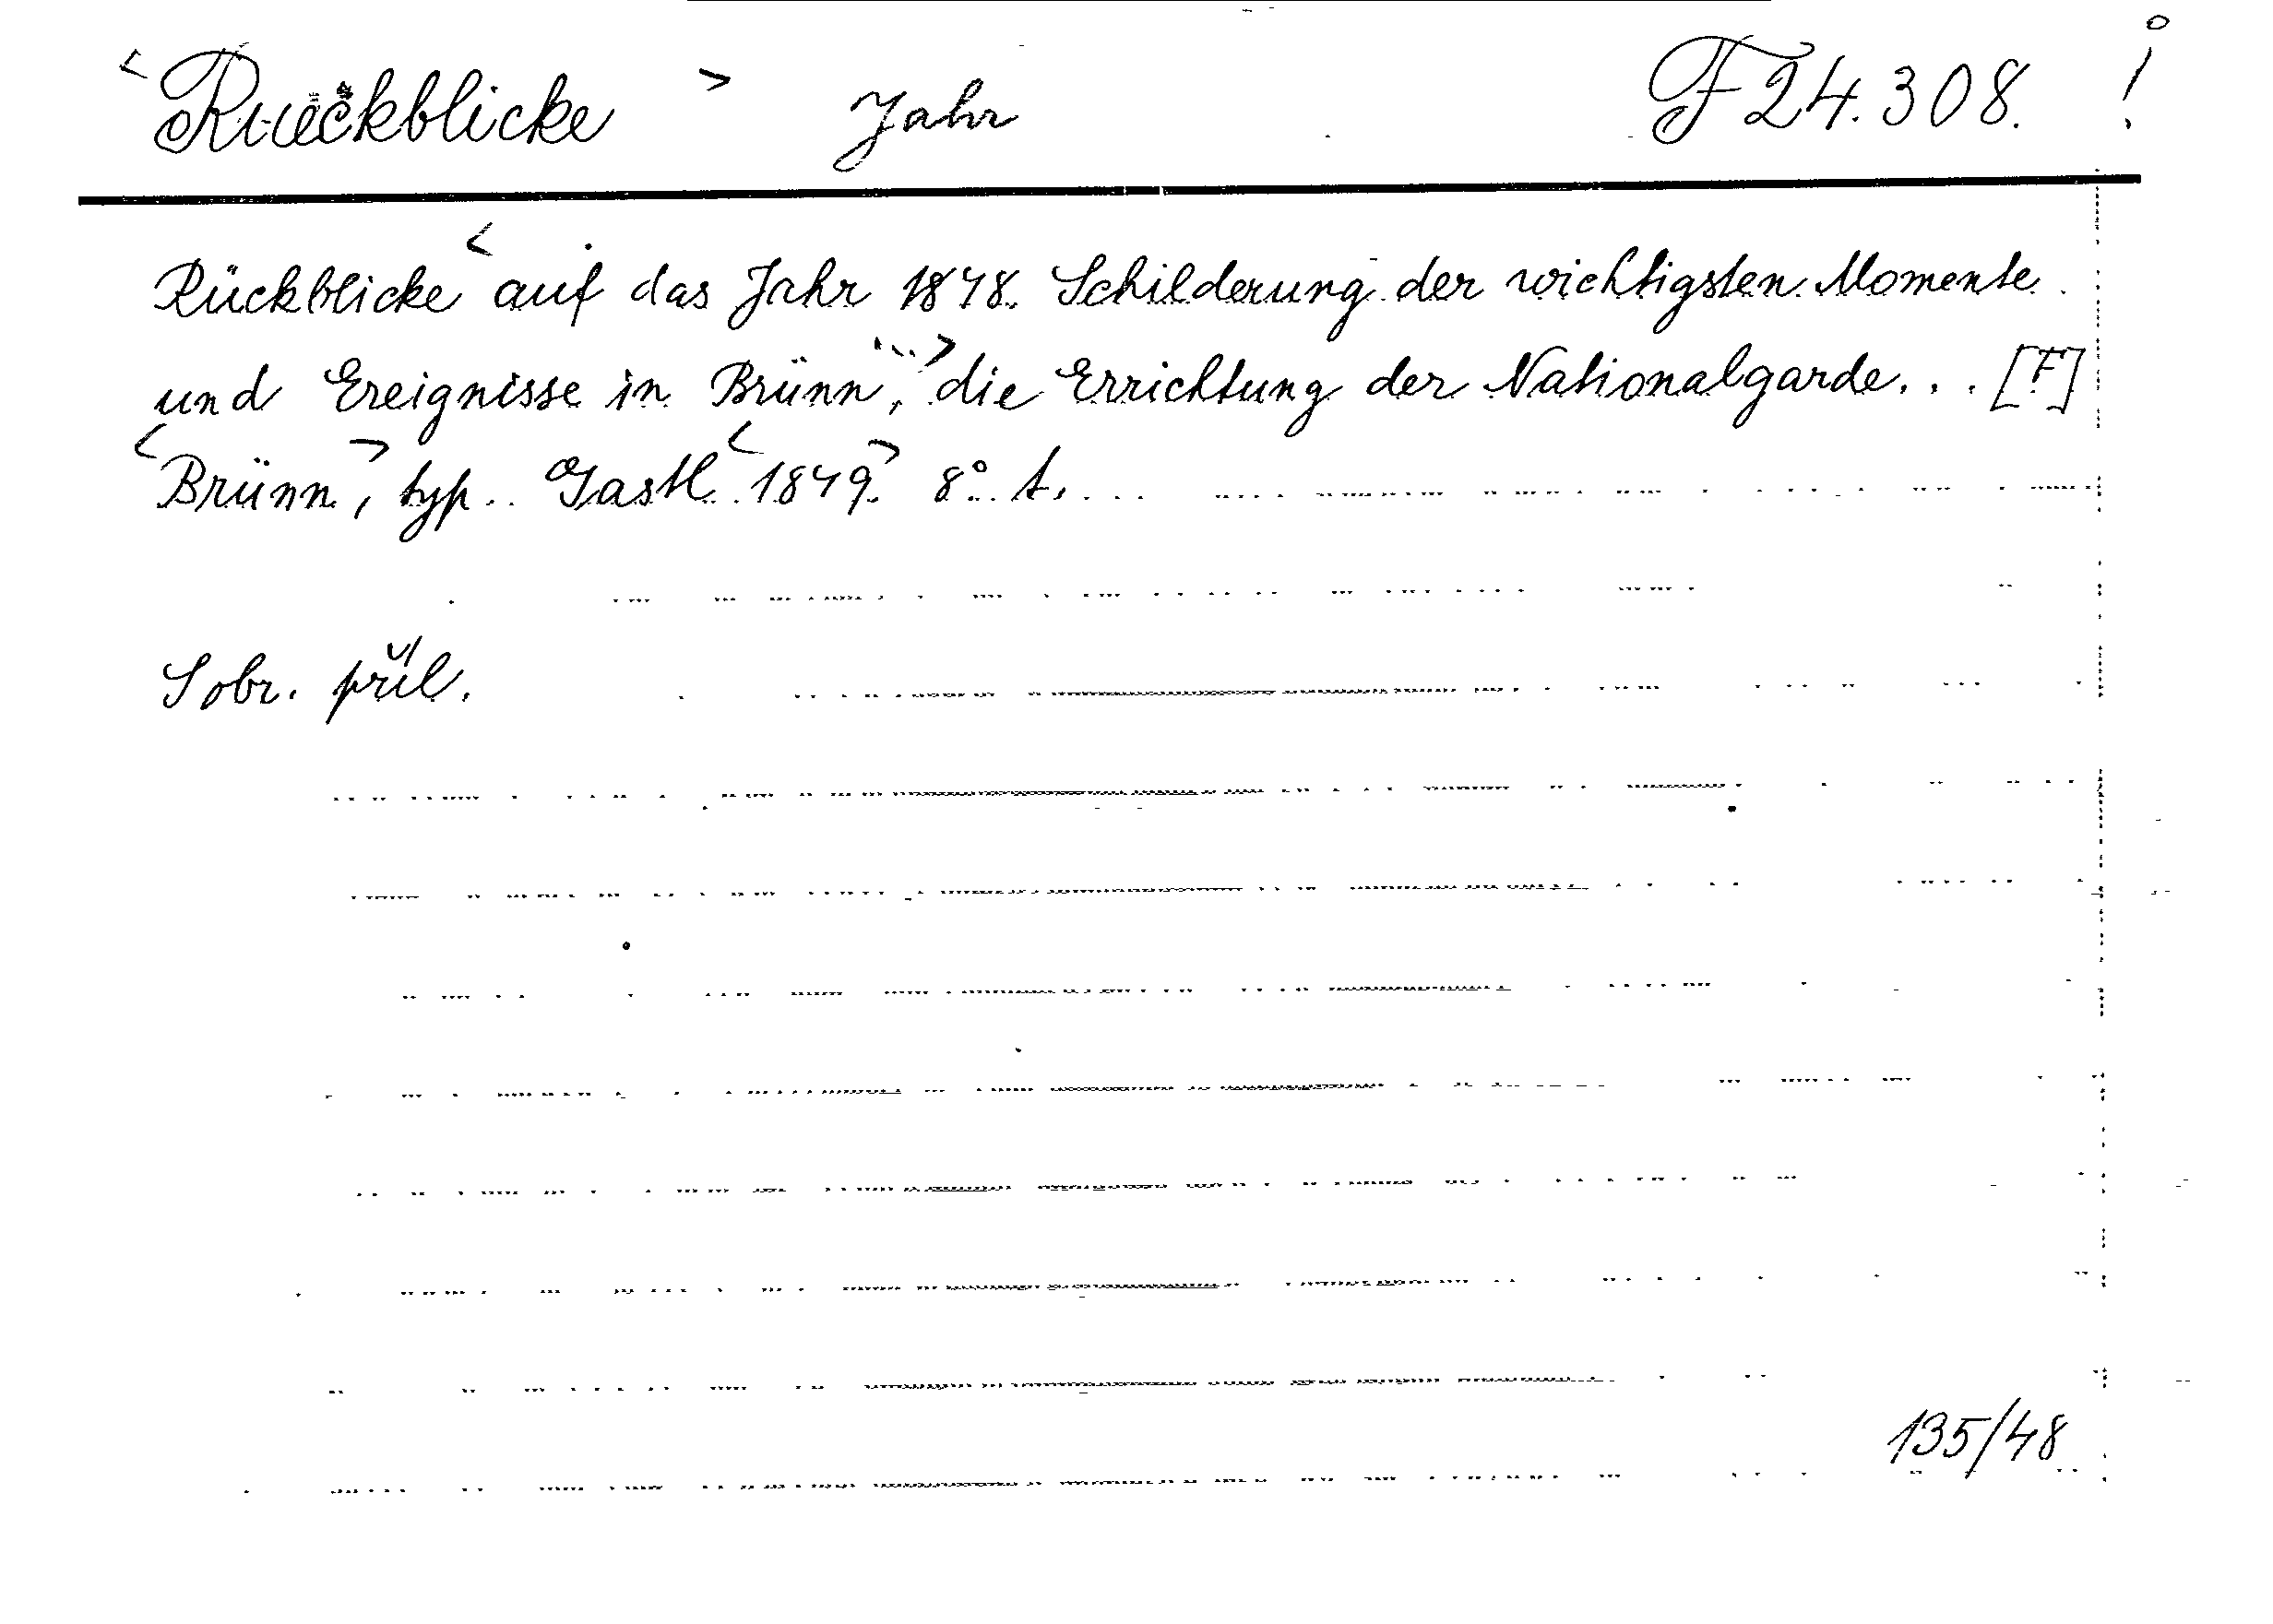 <Rueckblicke> Jahr F 24.308. !
Rückblicke <auf das Jahr 1848. Schilderung der wichtigsten Momente
und Ereignisse in Brünn, ...> die Errichtung der Nationalgarde... [F]
<Brünn>, typ. Gastl <1849> 8° t.
Sobr. příl.
135/48